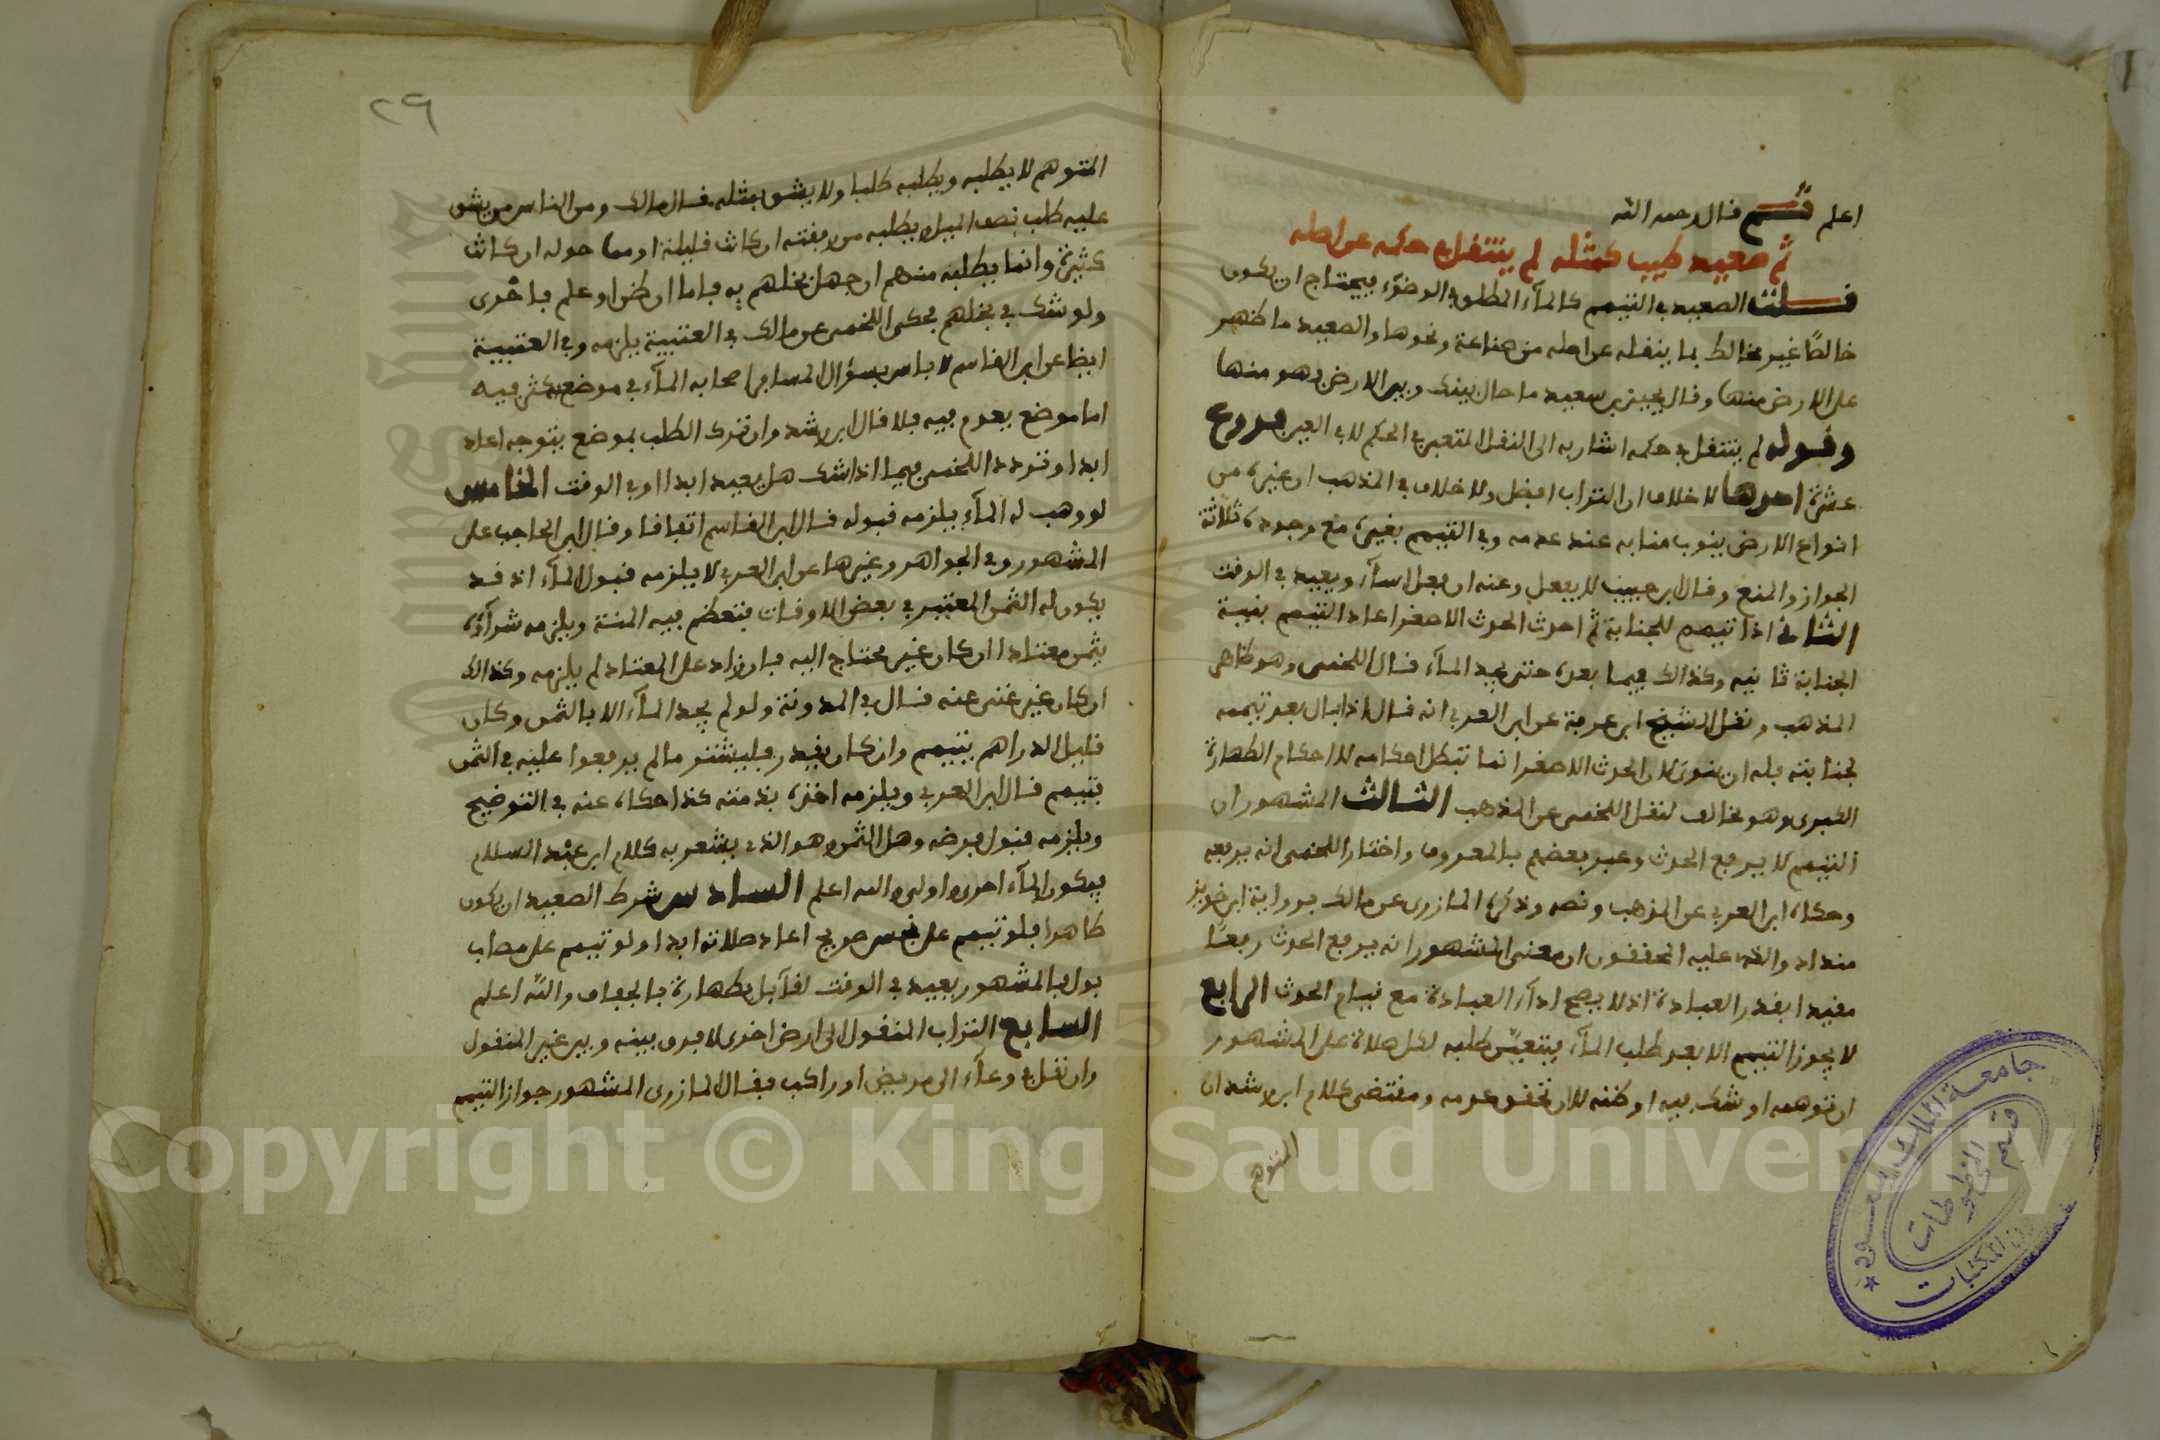 اعلم ثم قال رحمه الله
ثم صعيد طيب كمثله لم ينتقل في حكمه عن اصله
قلت الصعيد في التيمم كالمآء المطلق في الوضوء فيحتاج ان يكون
خالصًا غير مخالط بما ينقله عن اصله من صناعة ونحوها والصعيد ما ظهر
على الارض منها وقال يحيى بن سعيد ما حال بينك وبين الارض فهو منها
وقوله لم ينتقل في حكمه اشار به الى النقل المتعين في الحكم لا في العين فروع
عشرة احدها لا خلاف ان التراب افضل ولا خلاف في المذهب ان غيره من
انواع الارض ينوب منابه عند عدمه وفي التيمم بغيره مع وجوده ثلاثة
الجواز والمنع وقال ابن حبيب لا يفعل وعنه ان فعل اسآء ويعيد في الوقت
الثاني اذا تيمم للجنابة ثم احدث الحدث الاصغر اعاد التيمم بنية
الجنابة ثانيه وكذالك فيما بعده حتى يجد المآء قال اللخمي وهو ظاهر
المذهب ونقل الشيخ ابن عرفة عن ابن العربي انه قال اذا بال بعد تيممه
لجنابته فله ان ينوي لان الحدث الاصغر انما تبطل احكامه لا احكام الطهارة
الكبرى وهو مخالف لنقل اللخمي عن المذهب الثالث المشهور ان
التيمم لا يرفع الحدث وعبر بعضهم بالمعروف واختار اللخمي انه يرفعه
وحكاه ابن العربي عن المذهب ونصه وذكره المازري عن مالك برواية ابن خويز
منداد والذي عليه المحققون ان معنى المشهور انه يرفع الحدث رفعًا
مقيدا بقدر العبادة اذ لا يصح ادآء العبادة مع قيام الحدث الرابع
لا يجوز التيمم الا بعد طلب المآء فيتعين طلبه لكل صلاة على المشهور
ان توهمه او شك فيه او ظنه لا ان تحقق عدمه ومقتضى كلام ابن رشد ان
المتوهم
٢٩
المتوهم لا يطلبه ويطلبه طلبا ولا يشق بمثله قال مالك ومن الناس من يشق
عليه طلب نصف الميل ويطلبه من رفقته ان كانت قليلة او مما حوله ان كانت
كثيرة وانما يطلبه منهم ان جهل بخلهم به فاما ان ظن او علم فاحرى
ولو شك في بخلهم فحكى اللخمي عن مالك في العتبية يلزمه وفي العتبية
ايضا عن ابن القاسم لا باس بسؤال المسافر اصحابه المآء في موضع يكثر فيه
اما موضع يعدم فيه فلا قال ابن رشد وان ترك الطلب بموضع يتوجه اعاد
ابدا وتردد اللخمي فيما اذا شك هل يعيد ابدا او في الوقت الخامس
لو وهب له المآء يلزمه قبوله قال ابن القاسم اتفاقا وقال ابن الحاجب على
المشهور وفي الجواهر وغيرها عن ابن العربي لا يلزمه قبول المآء اذ قد
يكون له الثمن المعتبر في بعض الاوقات فتعظم فيه المنة ويلزمه شرآؤه
بثمن معتاد ان كان غير محتاج اليه فان زاد على المعتاد لم يلزمه وكذالك
ان كان غير غنى عنه قال في المدونة ولو لم يجد المآء الا بالثمن وكان
قليل الدراهم يتيمم وان كان يقدر فليشتر ما لم يرفعوا عليه في الثمن
يتيمم قال ابن العربي ويلزمه اخذه بذمته كذا حكاه عنه في التوضيح
ويلزمه قبول قرضه وهل الثمن وهو الذي يشعر به كلام ابن عبد السلام
فيكون المآء احرى واولى والله اعلم السادس شرط الصعيد ان يكون
طاهرا فلو تيمم على نجس صريح اعاد صلاته ابدا ولو تيمم على مصاب
بول فالمشهور يعيد في الوقت لقآئل بطهارة بالجفاف والله اعلم
السابع التراب المنقول الى ارض اخرى لا فرق بينه وبين غير المنقول
وان نقل في وعآء الى مريض او راكب فقال المازري المشهور جواز التيمم
جامعة الملك سعود
قسم المخطوطات
Copyright © King Saud University